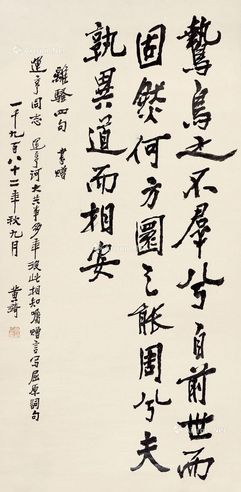 鷙鳥之不羣兮自前世而
固然何方圜之能周兮夫
孰異道而相安
離騷四句 書贈
亨同志 亨河大共事多年彼此相知囑贈言寫屈原詞句
一千九百八十二年秋九月 黃綺